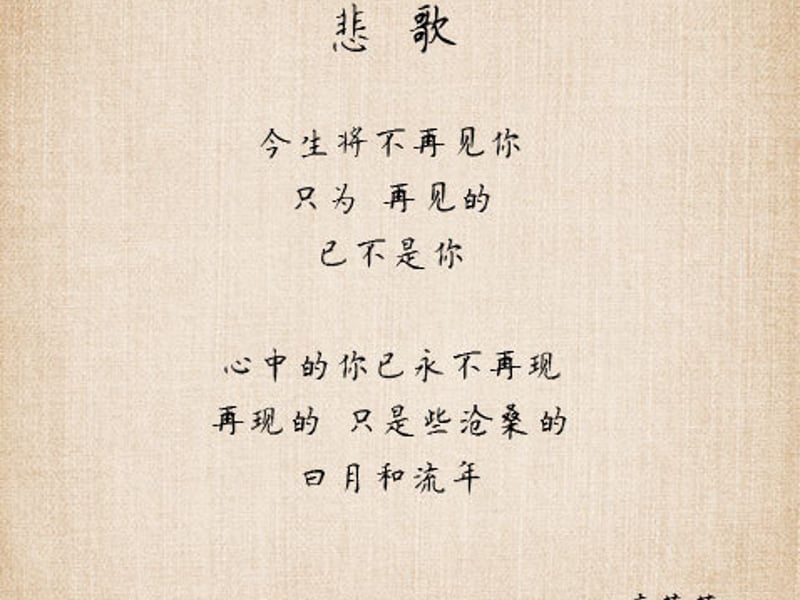 悲 歌
今生将不再见你
只为 再见的
已不是你
心中的你已永不再现
再现的 只是些沧桑的
日月和流年